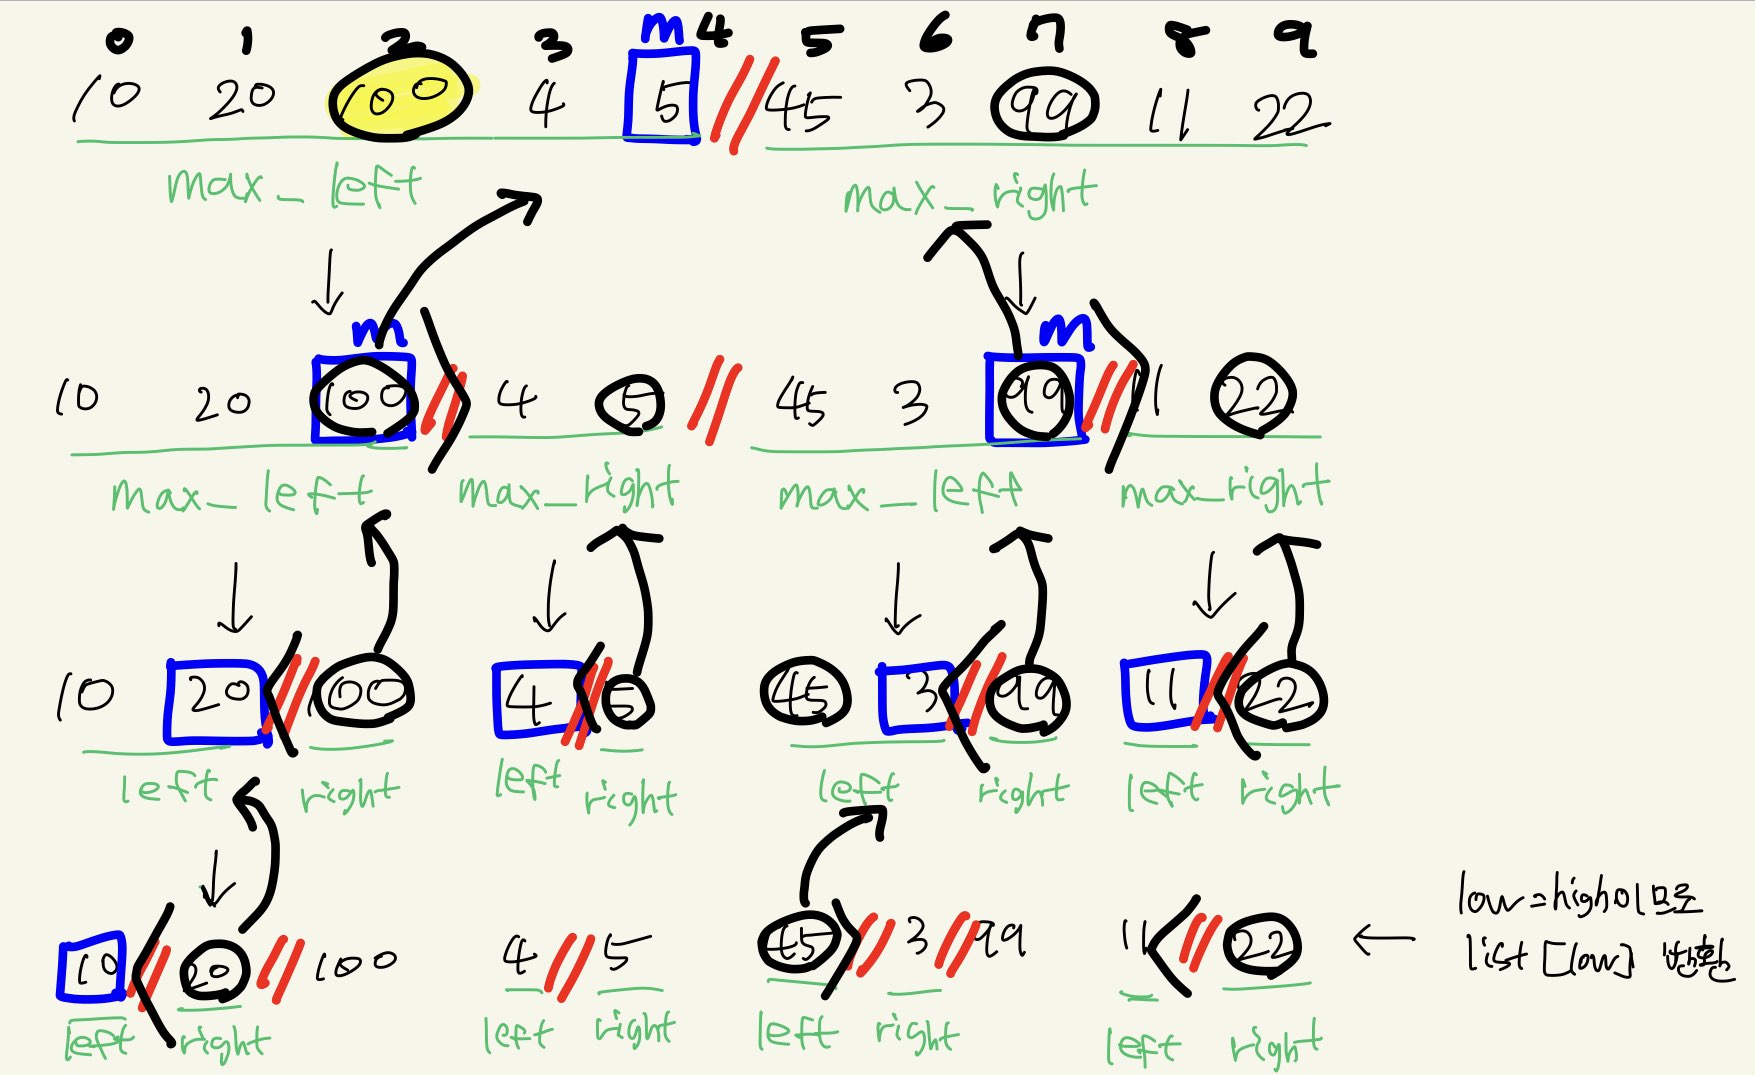 0 1 2 3 m 4 5 6 7 8 9
10 20 100 4 5 // 45 3 99 11 22
max_left max_right
m m
10 20 100 // 4 5 // 45 3 99 // 11 22
max_left max_right max_left max_right
10 20 // 100 4 // 5 45 3 // 99 11 // 22
left right left right left right left right
10 // 20 // 100 4 // 5 45 // 3 // 99 11 // 22
left right left right left right left right
low=high이므로
list [low] 반환